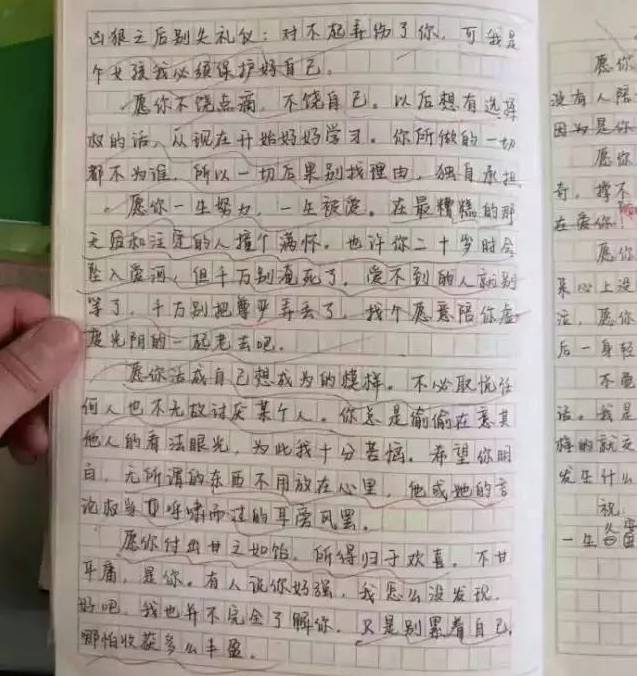 凶狠之后别失礼仪：对不起弄伤了你，可我是
个女孩我必须保护好自己。
愿你不饶点滴，不饶自己。以后想有选择
权的话，从现在开始好好学习。你所做的一切
都不为谁，所以一切后果别找理由，独自承担
。愿你一生努力，一生被爱。在最糟糕的那
天后和注定的人撞个满怀。也许你二十岁时会
坠入爱河，但千万别淹死了，爱不到的人就别
等了，千万别把尊严弄丢了，找个愿意陪你虚
度光阴的一起老去吧。
愿你活成自己想成为的模样。不必取悦任
何人也不无故讨厌某个人。你总是偷偷在意其
他人的看法眼光，为此我十分苦恼。希望你明
白，无所谓的东西不用放在心里，他或她的言
论权当耳呼啸而过的耳旁风罢。
愿你付出甘之如饴，所得归于欢喜。不甘
平庸，是你。有人说你好强，我怎么没发现。
好吧，我也并不完全了解你。只是别累着自己，
哪怕收获多么丰盈。
愿你
没有人陪
因为是你
愿你
奇，撑不
在爱你！
愿你
某心上没
活，愿你
后一身轻
不意
话。我是
样的就交
发生什么
祝
一生